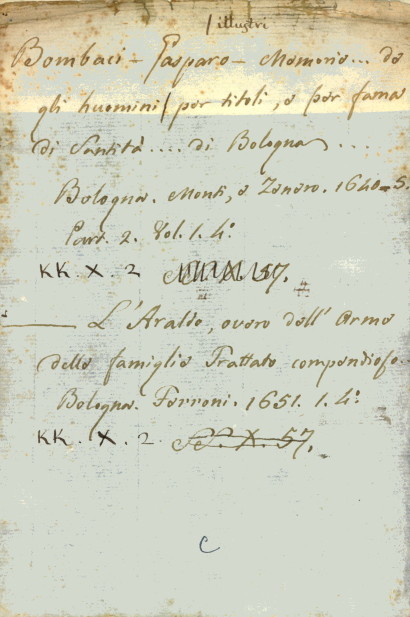 /illustri
Bombaci - Gasparo - Memorie... de
gli huomini/per titoli, e per fama
di Santità .... di Bologna ...
Bologna. Monti, e Zenero. 1640-5.
Part. 2. Vol. 1. 4º
KK. X. 2 57.
L'Araldo, overo dell' Arme
delle famiglie Trattato compendioso..
Bologna. Ferroni. 1651. 1. 4º
KK. X. 2. X. 57.
C